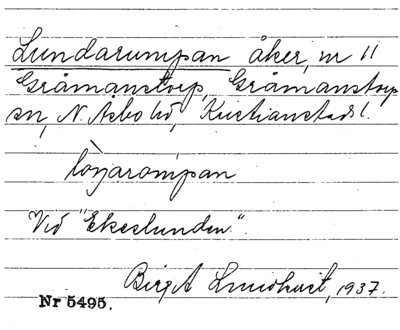 Lundarumpan åker, nr 11
Gråmanstorp, Gråmanstorp
sn, N. Åsbo hd, Kristianstads l.
Vid "Ekeslunden".
Birgit Lundkvist, 1937.
Nr 5495.